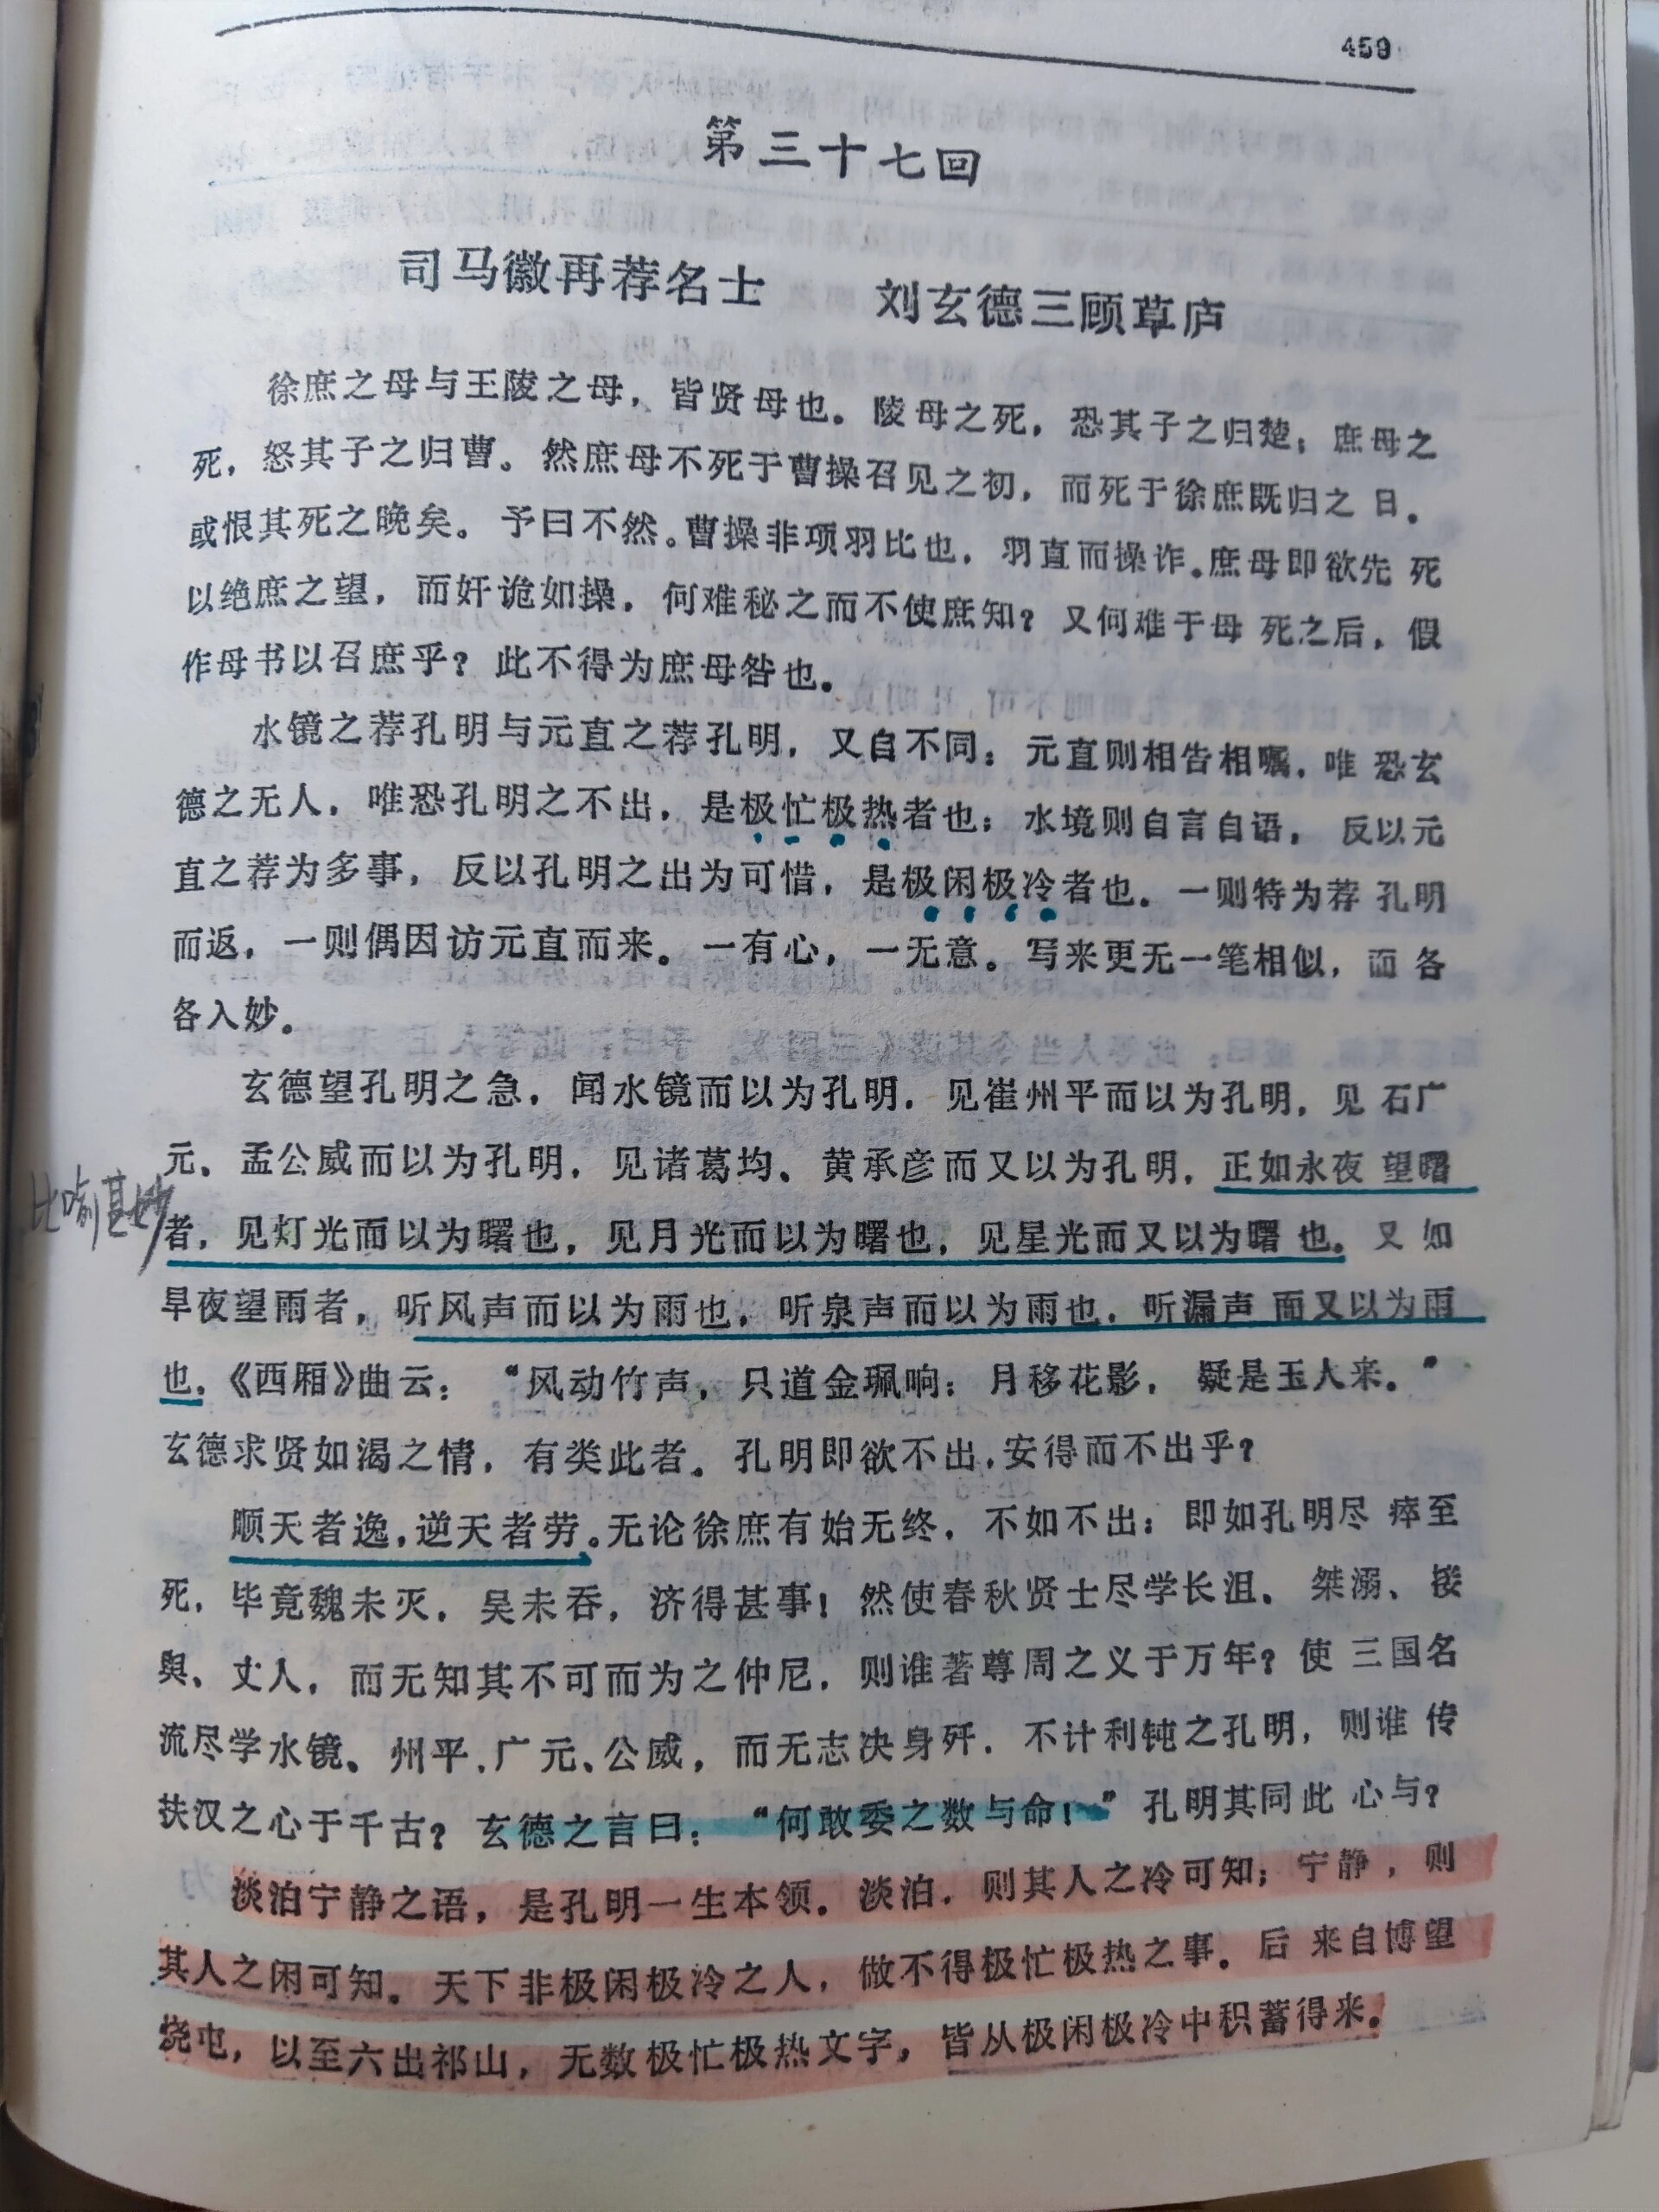 459
第三十七回
司马徽再荐名士 刘玄德三顾草庐
徐庶之母与王陵之母，皆贤母也。陵母之死，恐其子之归楚；庶母之
死，怒其子之归曹。然庶母不死于曹操召见之初，而死于徐庶既归之日。
或恨其死之晚矣。予曰不然。曹操非项羽比也，羽直而操诈。庶母即欲先死
以绝庶之望，而奸诡如操，何难秘之而不使庶知？又何难于母死之后，假
作母书以召庶乎？此不得为庶母咎也。
水镜之荐孔明与元直之荐孔明，又自不同：元直则相告相嘱，唯恐玄
德之无人，唯恐孔明之不出，是极忙极热者也；水境则自言自语，反以元
直之荐为多事，反以孔明之出为可惜，是极闲极冷者也。一则特为荐孔明
而返，一则偶因访元直而来。一有心，一无意。写来更无一笔相似，而各
各入妙。
玄德望孔明之急，闻水镜而以为孔明，见崔州平而以为孔明，见石广
元、孟公威而以为孔明，见诸葛均、黄承彦而又以为孔明，正如永夜望曙
比喻甚妙
者，见灯光而以为曙也，见月光而以为曙也，见星光而又以为曙也。又如
旱夜望雨者，听风声而以为雨也，听泉声而以为雨也，听漏声而又以为雨
也。《西厢》曲云：“风动竹声，只道金珮响；月移花影，疑是玉人来。”
玄德求贤如渴之情，有类此者。孔明即欲不出，安得而不出乎？
顺天者逸，逆天者劳。无论徐庶有始无终，不如不出；即如孔明尽瘁至
死，毕竟魏未灭，吴未吞，济得甚事！然使春秋贤士尽学长沮、桀溺、接
舆、丈人，而无知其不可而为之仲尼，则谁著尊周之义于万年？使三国名
流尽学水镜、州平、广元、公威，而无志决身歼，不计利钝之孔明，则谁传
扶汉之心于千古？玄德之言曰：“何敢委之数与命！”孔明其同此心与？
淡泊宁静之语，是孔明一生本领。淡泊，则其人之冷可知；宁静，则
其人之闲可知。天下非极闲极冷之人，做不得极忙极热之事。后来自博望
烧屯，以至六出祁山，无数极忙极热文字，皆从极闲极冷中积蓄得来。